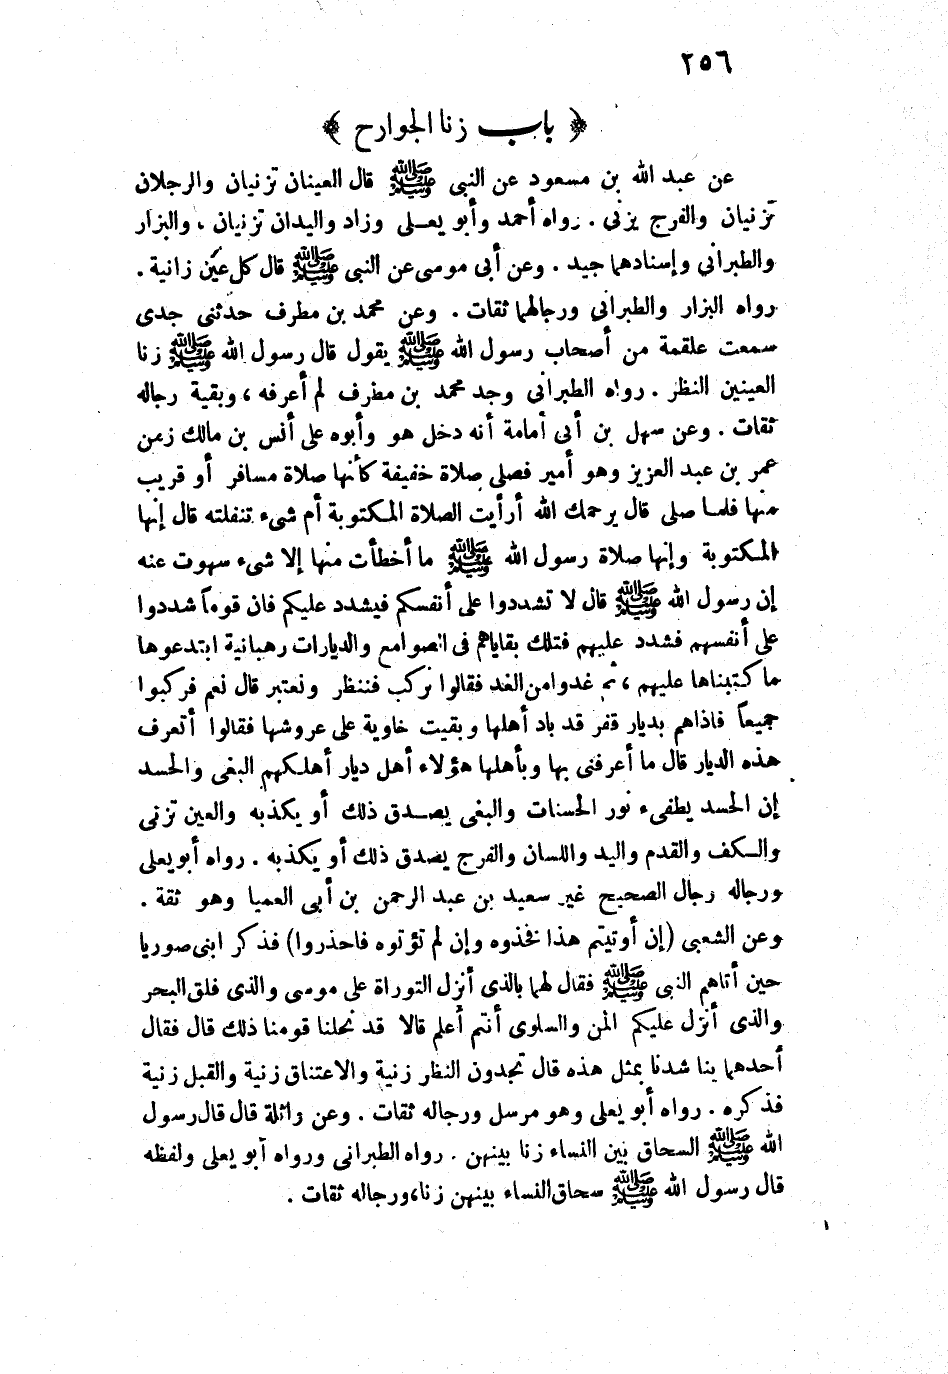 ٢٥٦
﴿ باب زنا الجوارح ﴾
عن عبد الله بن مسعود عن النبى ﷺ قال العينان تزنيان والرجلان
تزنيان والفرج يزنى . رواه أحمد وأبو يعلى وزاد واليدان تزنيان ، والبزار
والطبرانى وإسنادهما جيد . وعن أبى موسى عن النبى ﷺ قال كل عين زانية .
رواه البزار والطبرانى ورجالهما ثقات . وعن محمد بن مطرف حدثنى جدى
سمعت علقمة من أصحاب رسول الله ﷺ يقول قال رسول الله ﷺ زنا
العينين النظر . رواه الطبرانى وجد محمد بن مطرف لم أعرفه ، وبقية رجاله
ثقات . وعن سهل بن أبى أمامة أنه دخل هو وأبوه على أنس بن مالك زمن
عمر بن عبد العزيز وهو أمير فصلى صلاة خفيفة كأنها صلاة مسافر أو قريب
منها فلما صلى قال يرحمك الله أرأيت الصلاة المكتوبة أم شىء تنفلته قال إنها
المكتوبة وإنها صلاة رسول الله ﷺ ما أخطأت منها إلا شىء سهوت عنه
إن رسول الله ﷺ قال لا تشددوا على أنفسكم فيشدد عليكم فان قوماً شددوا
على أنفسهم فشدد عليهم فتلك بقاياهم فى الصوامع والديارات رهبانية ابتدعوها
ما كتبناها عليهم ، ثم غدوا من الغد فقالوا نركب فننظر ونعتبر قال نعم فركبوا
جميعاً فاذاهم بديار قفر قد باد أهلها وبقيت خاوية على عروشها فقالوا أتعرف
هذه الديار قال ما أعرفنى بها وبأهلها هؤلاء أهل ديار أهلكهم البغى والحسد
إن الحسد يطفىء نور الحسنات والبغى يصدق ذلك أو يكذبه والعين تزنى
والكف والقدم واليد واللسان والفرج يصدق ذلك أو يكذبه . رواه أبو يعلى
ورجاله رجال الصحيح غير سعيد بن عبد الرحمن بن أبى العميا وهو ثقة .
وعن الشعبى (إن أوتيتم هذا فخذوه وإن لم تؤتوه فاحذروا) فذكر ابنى صوريا
حين أتاهم النبى ﷺ فقال لهما بالذى أنزل التوراة على موسى والذى فلق البحر
والذى أنزل عليكم المن والسلوى أنتم أعلم قالا قد نحلنا قومنا ذلك قال فقال
أحدهما بنا شدنا بمثل هذه قال تجدون النظر زنية والاعتناق زنية والقبل زنية
فذكره . رواه أبو يعلى وهو مرسل ورجاله ثقات . وعن واثلة قال قال رسول
الله ﷺ السحاق بين النساء زنا بينهن . رواه الطبرانى ورواه أبو يعلى ولفظه
قال رسول الله ﷺ سحاق النساء بينهن زنا، ورجاله ثقات .